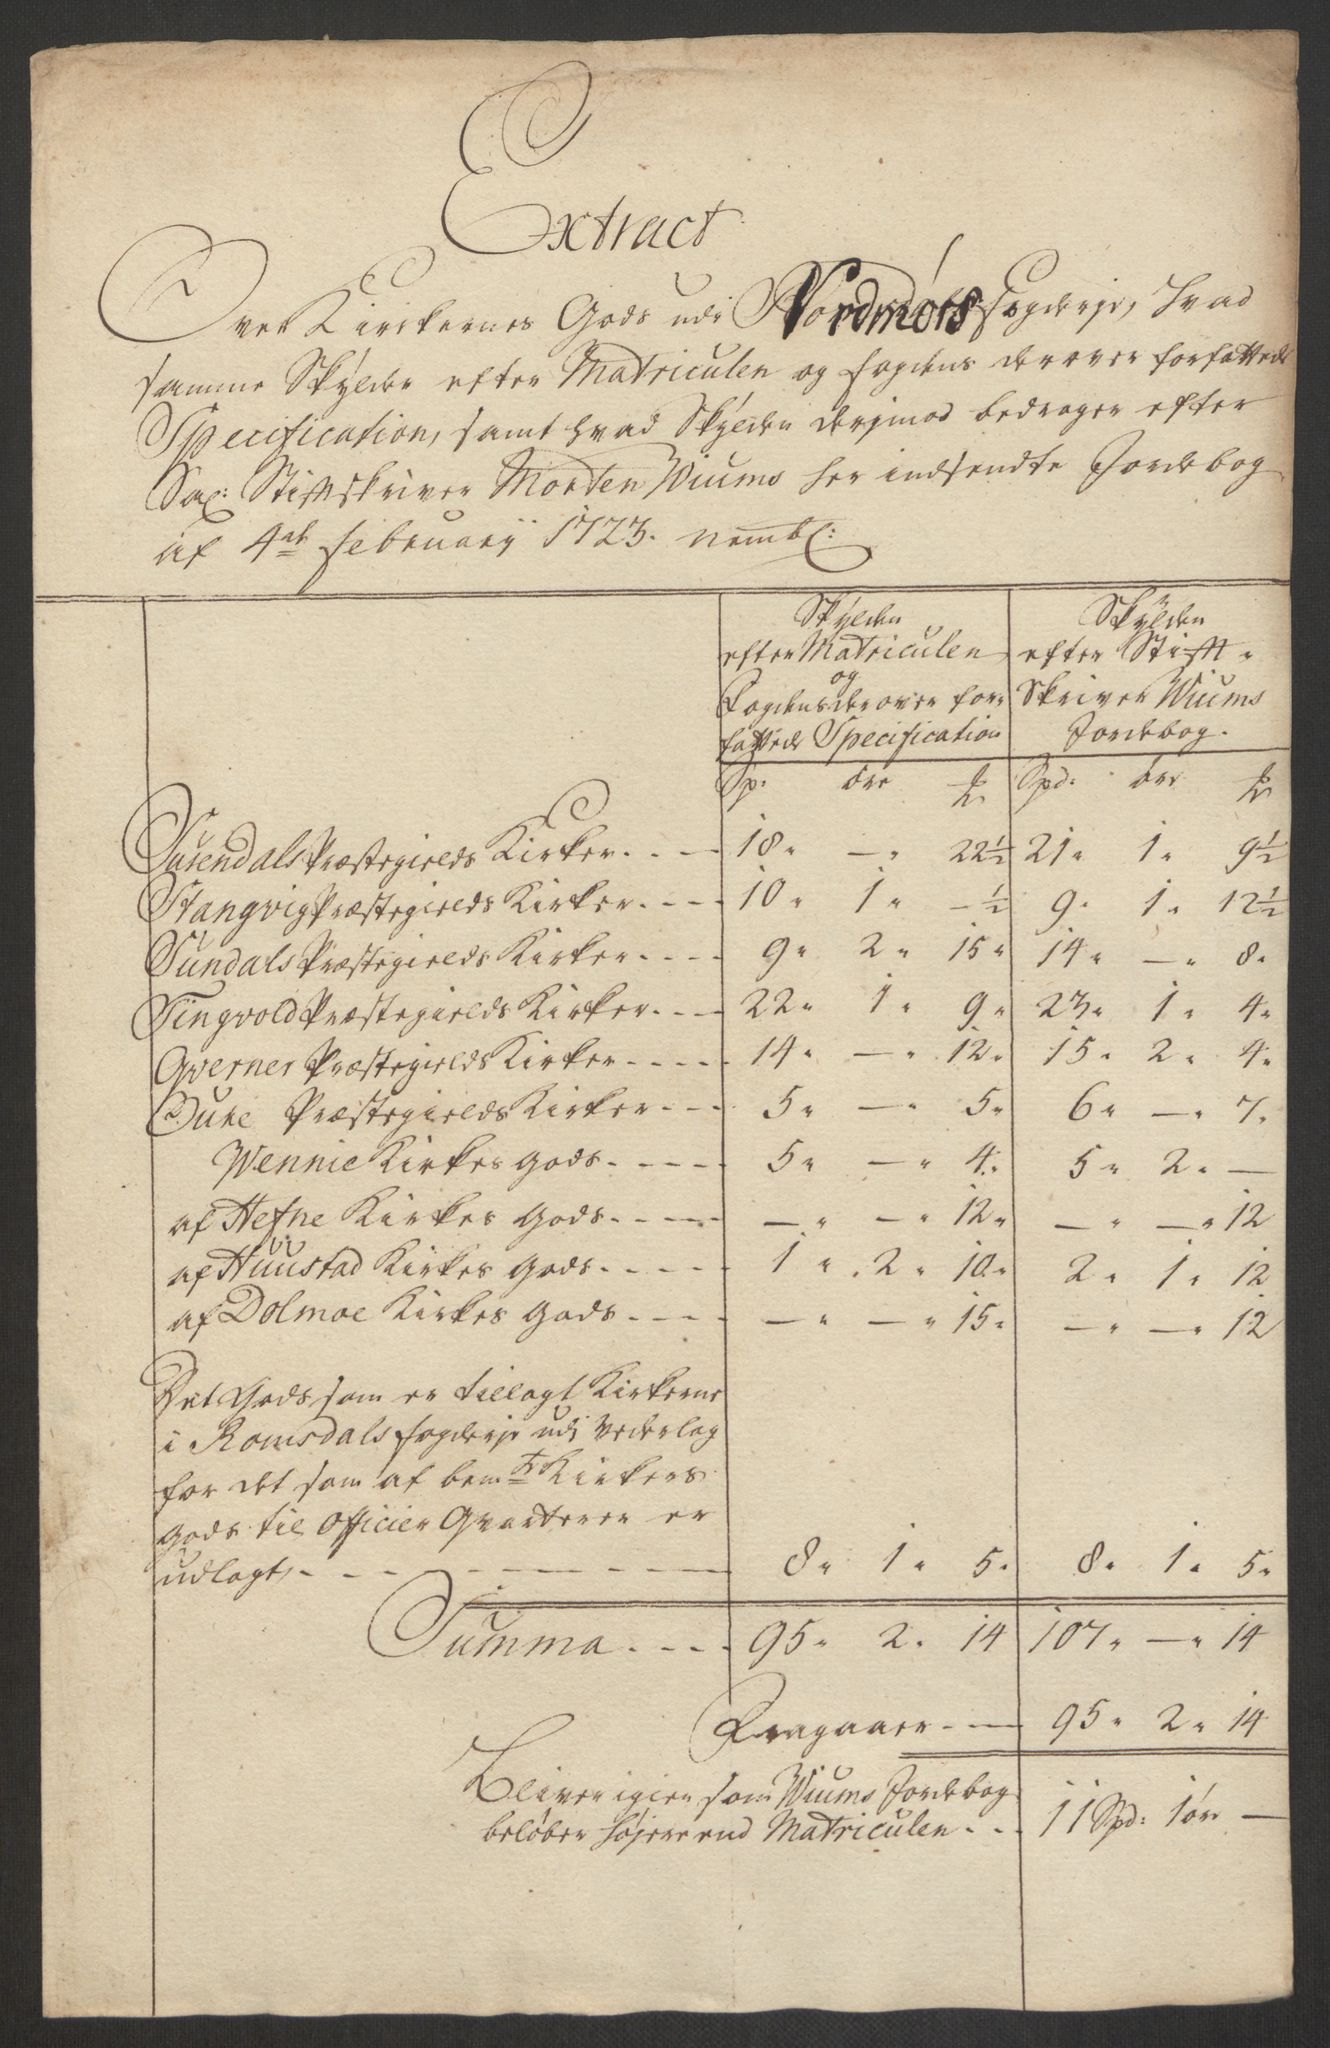 Extract
Over Kirckernes Gods udi Nordmørs fogderje, hvad
samme Skylder efter Matriculen og fogdens derover forfattede
Specification, samt hvad Skylden derjmod bedrager efter
Sal: Stiftskriver Morten Wiums her indsendte Jordebog
af 4de february 1723. nembl:
Skylden efter Matriculen og Fogdens derover forfattede Specification
Skylden efter Stift-Skriver Wiums Jordebog.
Sp. öre Spd: öre
Surendals Præstegields Kirker. 18 — 22½ 21 1 9½
Stangvig Præstegields Kirker. 10 1 — ½ 9 1 12½
Sundals Præstegields Kirker 9 2 15 14 — 8
Tingvold Præstegields Kirker. 22 1 9 23 1 4
Qverner Præstegields Kirker 14 — 12 15 2 4
Oure Præstegields Kirker 5 — 5 6 — 7
Wennie Kirkes gods. 5 — 4 5 2 —
af Hefne Kirkes gods — — 12 — — 12
af Huustad Kirkes gods. 1 2 10 2 1 12
af Dolmoe Kirkes gods — — 15 — — 12
Det Gods som er tillagt Kirkerne
i Romsdals fogderje udi Vederlag
for det som af bemte Kirkers
gods til Officier Qvarterer er
udlagt, 8 1 5 8 1 5
Summa 95 2 14 107 — 14
Fragaaer 95 2 14
Bliver igien som Wiums Jordebog
beløber højere end Matriculen 11 Spd: 1 ör —